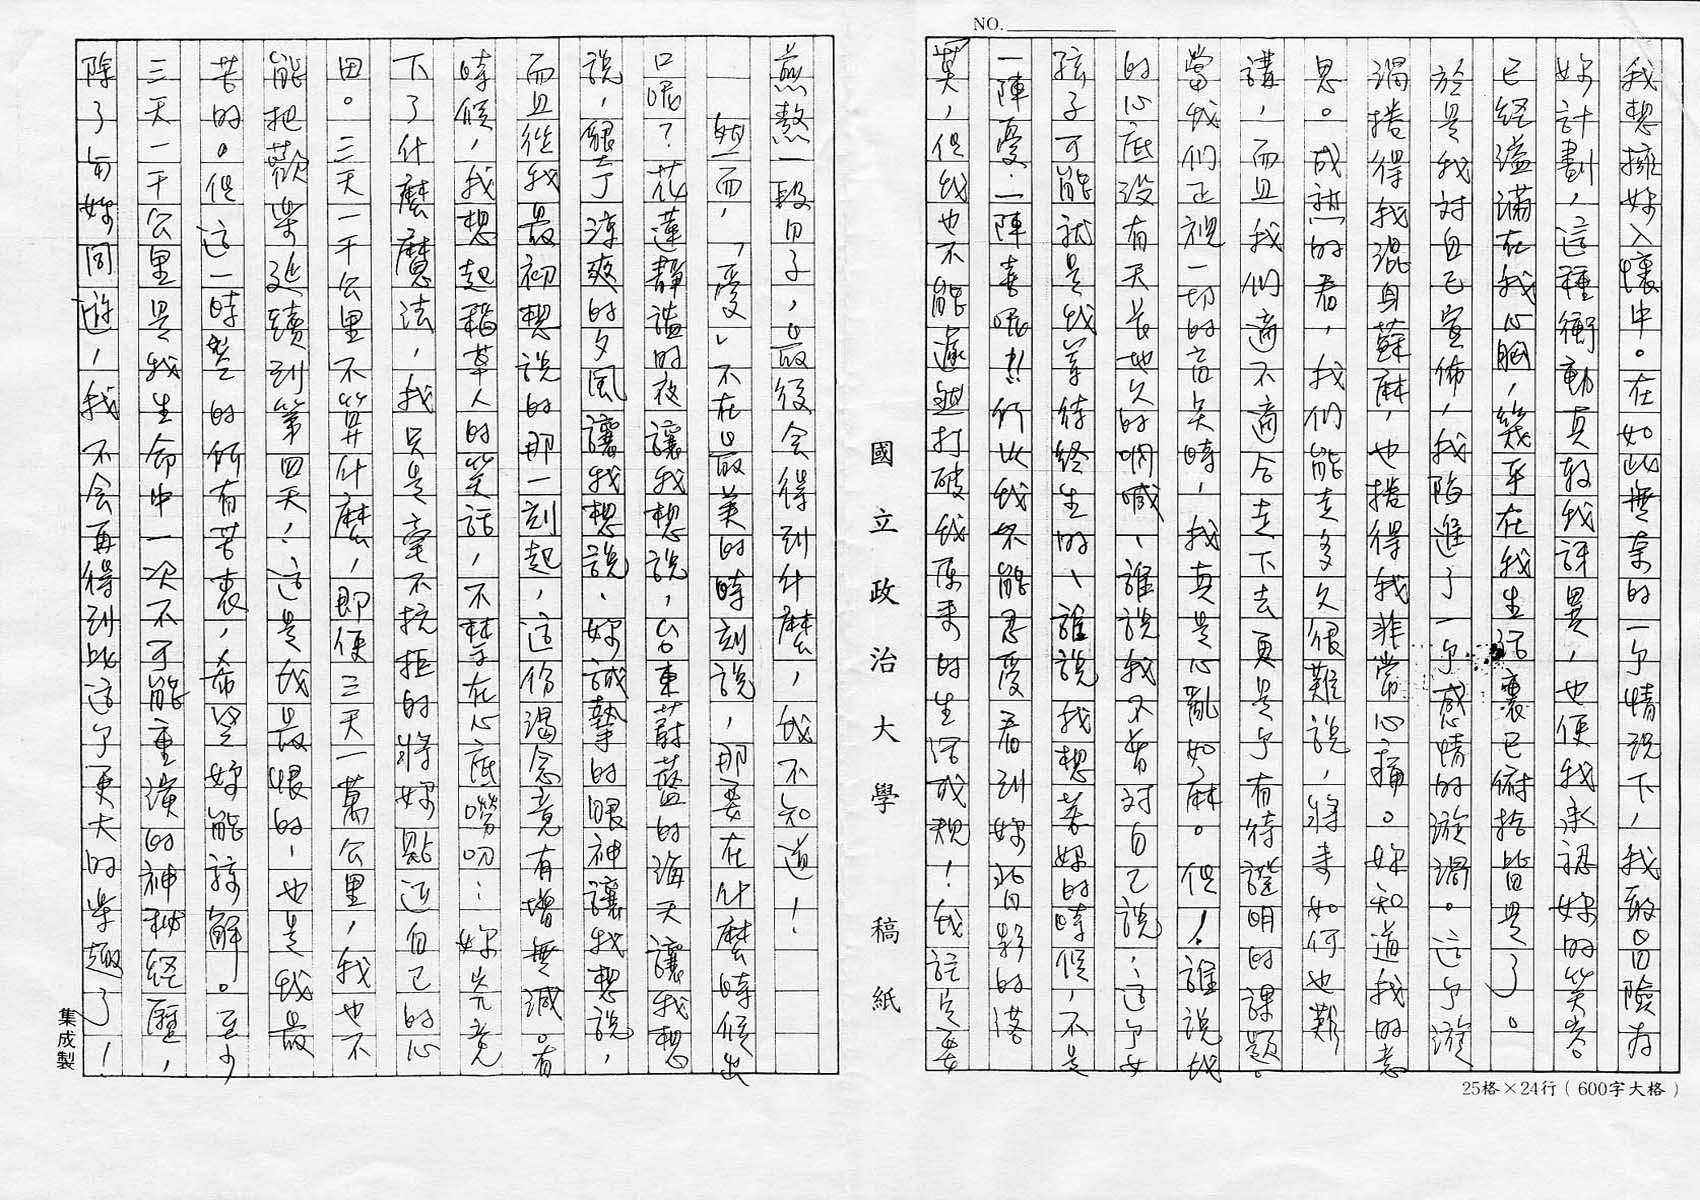 NO.
我想擁妳入懷中。在如此無奈的一个情況下,我敢冒險為
妳計劃,這種衝動真教我訝異,也便我承認妳的笑容
已經溢滿在我心胸,幾乎在我生活裏已俯拾皆是了。
於是我対自己宣佈,我陷進了一个感情的漩渦。這个漩
渦捲得我混身蘇麻,也捲得我非常心痛。妳知道我的意
思。成熟的君,我們能走多久很難說,將來如何也難
講,而且我們適不適合走下去更是个有待證明的課題。
當我們正視一切的言笑時,我真是心亂如麻。但!誰說我
的心底沒有天長地久的吶喊、誰說我不曾対自己說:這个女
孩子可能就是我等待終生的、誰說我想著妳的時候,不是
一陣憂一陣喜呢!!所以我不能忍受看到妳背影的落
莫,但我也不能遽然打破我原來的生活成規!我註定要
國立政治大學稿紙
25格×24行(600字大格)
煎熬一段日子,最後会得到什麼,我不知道!
然而,「愛」不在最美的時刻說,那要在什麼時候出
口呢?花蓮靜謐的夜讓我想說,台東蔚藍的海天讓我想
說,墾丁涼爽的夕風讓我想說、妳誠摯的眼神讓我想說,
而且從我最初想說的那一刻起,這份渴念竟有增無減。有
時候,我想起稻草人的笑話,不禁在心底嘮叨:妳究竟
下了什麼魔法,我只是毫不抗拒的將妳點進自己的心
田。三天一千公里不算什麼,即便三天一萬公里,我也不
能把歡樂延續到第四天!這是我最恨的-也是我最
苦的。但這一時埜的所有苦衷,希望妳能諒解。至少
三天一千公里是我生命中一次不可能重演的神秘経歷,
除了与妳同遊,我不会再得到比這个更大的樂趣了!
集成製